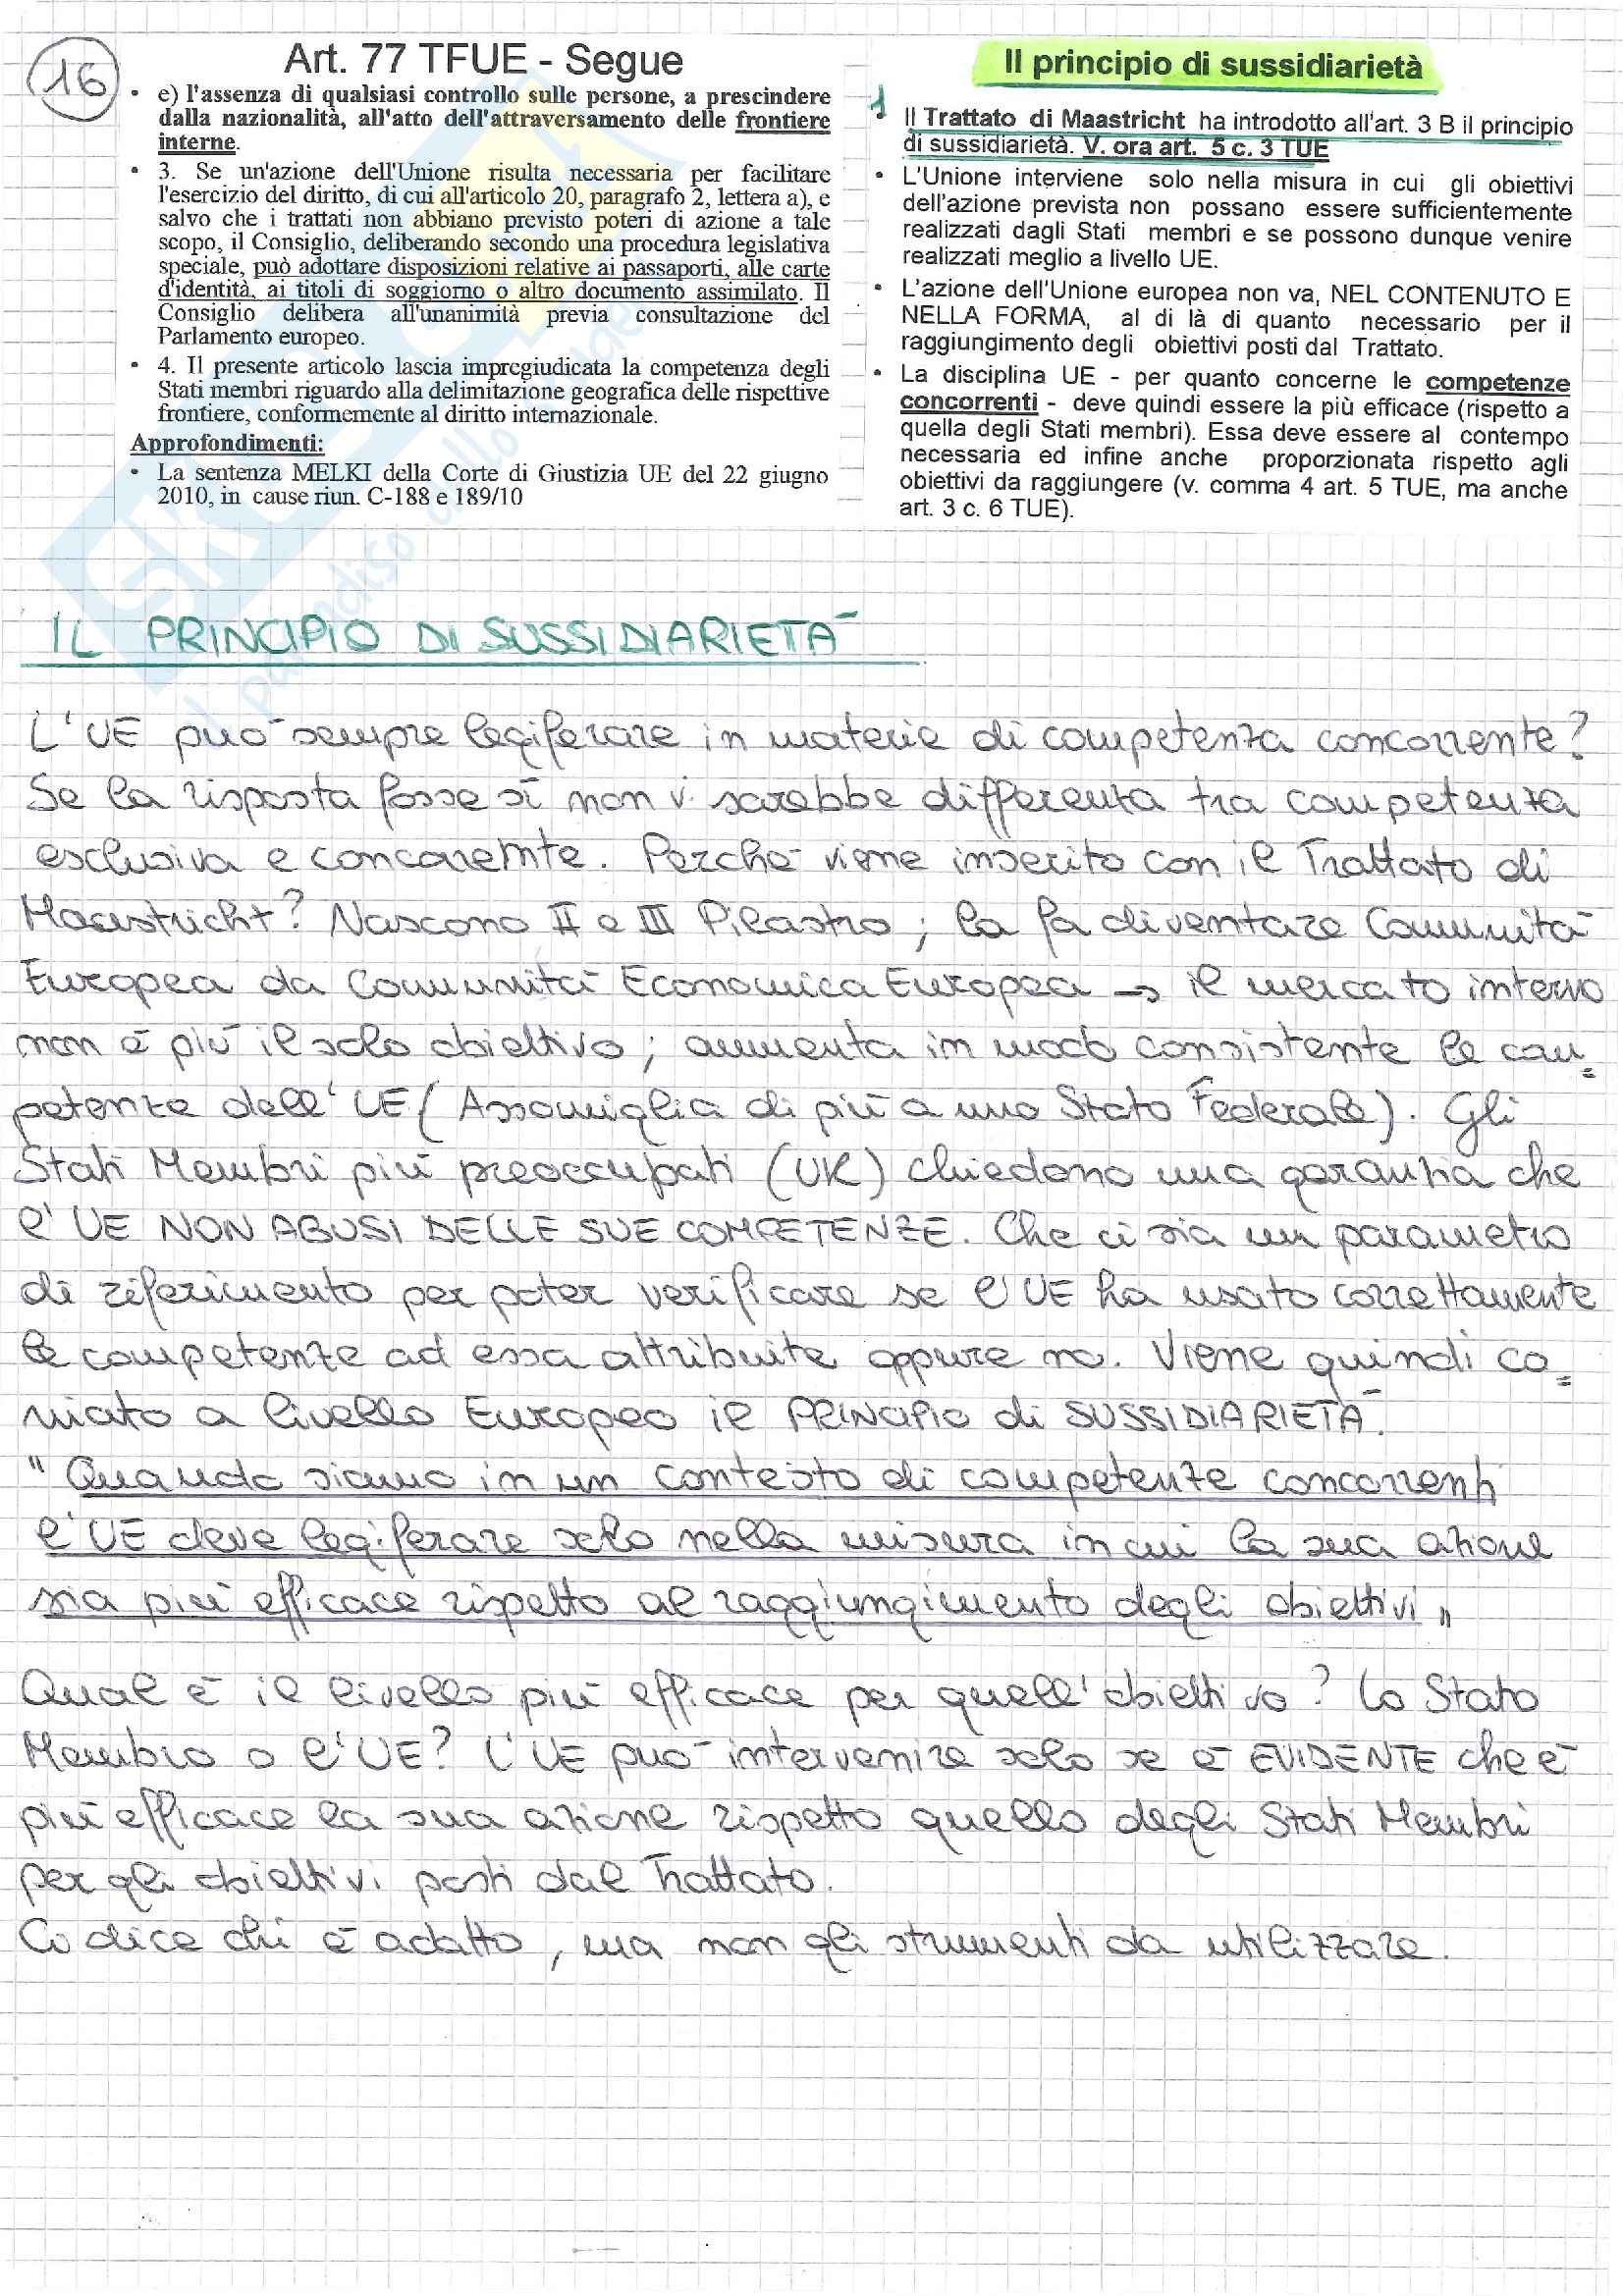 16
Art. 77 TFUE - Segue
• e) l'assenza di qualsiasi controllo sulle persone, a prescindere
dalla nazionalità, all'atto dell'attraversamento delle frontiere
interne.
• 3. Se un'azione dell'Unione risulta necessaria per facilitare
l'esercizio del diritto, di cui all'articolo 20, paragrafo 2, lettera a), e
salvo che i trattati non abbiano previsto poteri di azione a tale
scopo, il Consiglio, deliberando secondo una procedura legislativa
speciale, può adottare disposizioni relative ai passaporti, alle carte
d'identità, ai titoli di soggiorno o altro documento assimilato. Il
Consiglio delibera all'unanimità previa consultazione del
Parlamento europeo.
• 4. Il presente articolo lascia impregiudicata la competenza degli
Stati membri riguardo alla delimitazione geografica delle rispettive
frontiere, conformemente al diritto internazionale.
Approfondimenti:
• La sentenza MELKI della Corte di Giustizia UE del 22 giugno
2010, in cause riun. C-188 e 189/10
Il principio di sussidiarietà
1 Il Trattato di Maastricht ha introdotto all'art. 3 B il principio
di sussidiarietà. V. ora art. 5 c. 3 TUE
• L'Unione interviene solo nella misura in cui gli obiettivi
dell'azione prevista non possano essere sufficientemente
realizzati dagli Stati membri e se possono dunque venire
realizzati meglio a livello UE.
• L'azione dell'Unione europea non va, NEL CONTENUTO E
NELLA FORMA, al di là di quanto necessario per il
raggiungimento degli obiettivi posti dal Trattato.
• La disciplina UE - per quanto concerne le competenze
concorrenti - deve quindi essere la più efficace (rispetto a
quella degli Stati membri). Essa deve essere al contempo
necessaria ed infine anche proporzionata rispetto agli
obiettivi da raggiungere (v. comma 4 art. 5 TUE, ma anche
art. 3 c. 6 TUE).
SKUOLA
il paradiso dello
IL PRINCIPIO DI SUSSIDIARIETÀ
L'UE può sempre legiferare in materie di competenza concorrente?
Se la risposta fosse sì non vi sarebbe differenza tra competenza
esclusiva e concorrente. Perché viene inserito con il Trattato di
Maastricht? Nascono II e III Pilastro; la fa diventare Comunità
Europea da Comunità Economica Europea → il mercato interno
non è più il solo obiettivo; aumenta in modo consistente le com=
petenze dell'UE (Assomiglia di più a uno Stato Federale). Gli
Stati Membri più preoccupati (UK) chiedono una garanzia che
l'UE NON ABUSI DELLE SUE COMPETENZE. Che ci sia un parametro
di riferimento per poter verificare se l'UE ha usato correttamente
le competenze ad essa attribuite oppure no. Viene quindi co=
niato a livello Europeo il PRINCIPIO di SUSSIDIARIETÀ.
"Quando siamo in un contesto di competenze concorrenti
l'UE deve legiferare solo nella misura in cui la sua azione
sia più efficace rispetto al raggiungimento degli obiettivi"
Qual è il livello più efficace per quell'obiettivo? Lo Stato
Membro o l'UE? L'UE può intervenire solo se è EVIDENTE che è
più efficace la sua azione rispetto quello degli Stati Membri
per gli obiettivi posti dal Trattato.
Ci dice chi è adatto, ma non gli strumenti da utilizzare.